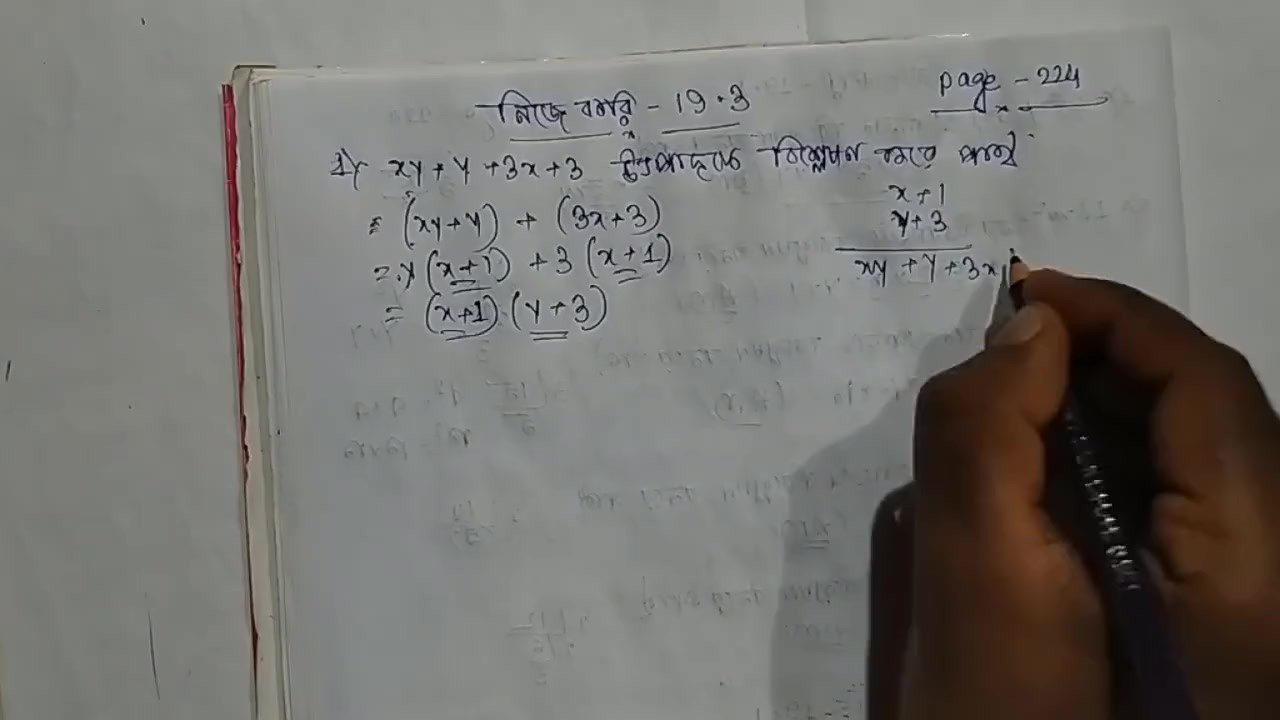 নিজে করি - 19.3
Page - 224
1) xy + y + 3x + 3 উৎপাদকে বিশ্লেষণ করে পাই
= (xy + y) + (3x + 3)
= y (x + 1) + 3 (x + 1)
= (x + 1) (y + 3)
x + 1
y + 3
xy + y + 3x